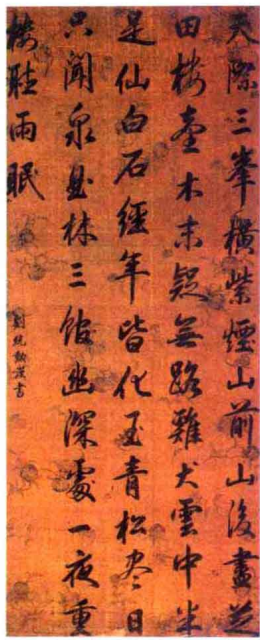 天際三峯橫紫煙山前山後盡芝
田樓臺木末疑無路雞犬雲中半
是仙白石經年皆化玉青松盡日
只聞泉思林三館幽深處一夜重
樓聽雨眠
劉統勳書